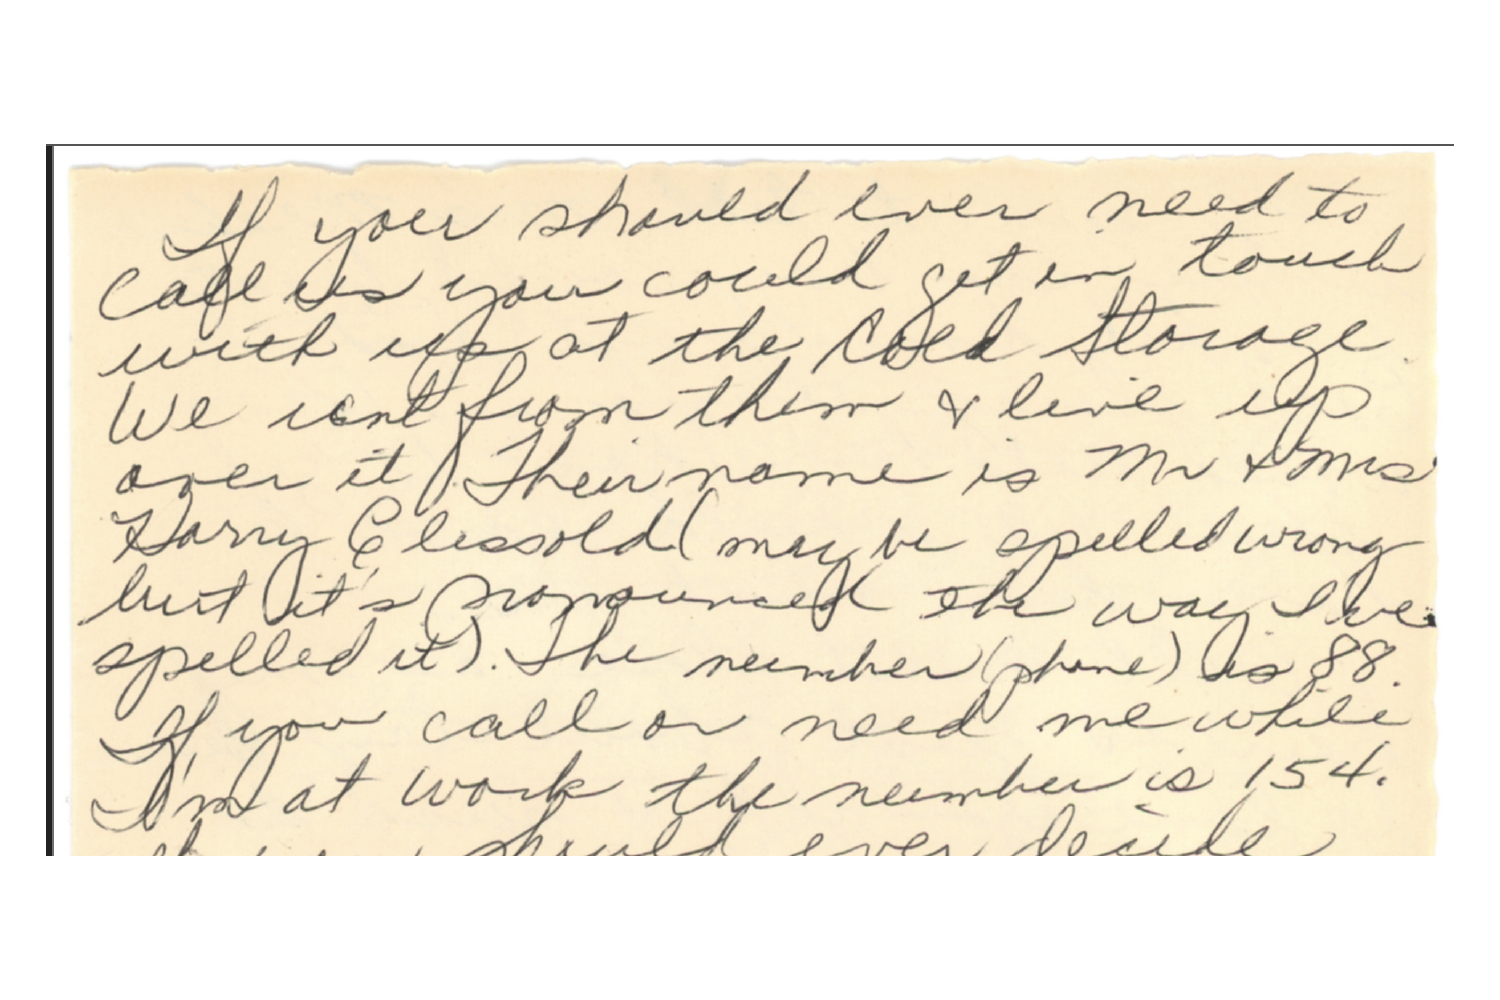 If you should ever need to
call us you could get in touch
with us at the Cold Storage.
We rent from them & live up
over it. Their name is Mr & Mrs
Harry Clissold (may be spelled wrong
but it's pronounced the way I've
spelled it). The number (phone) is 88.
If you call or need me while
I'm at work the number is 154.
should ever decide